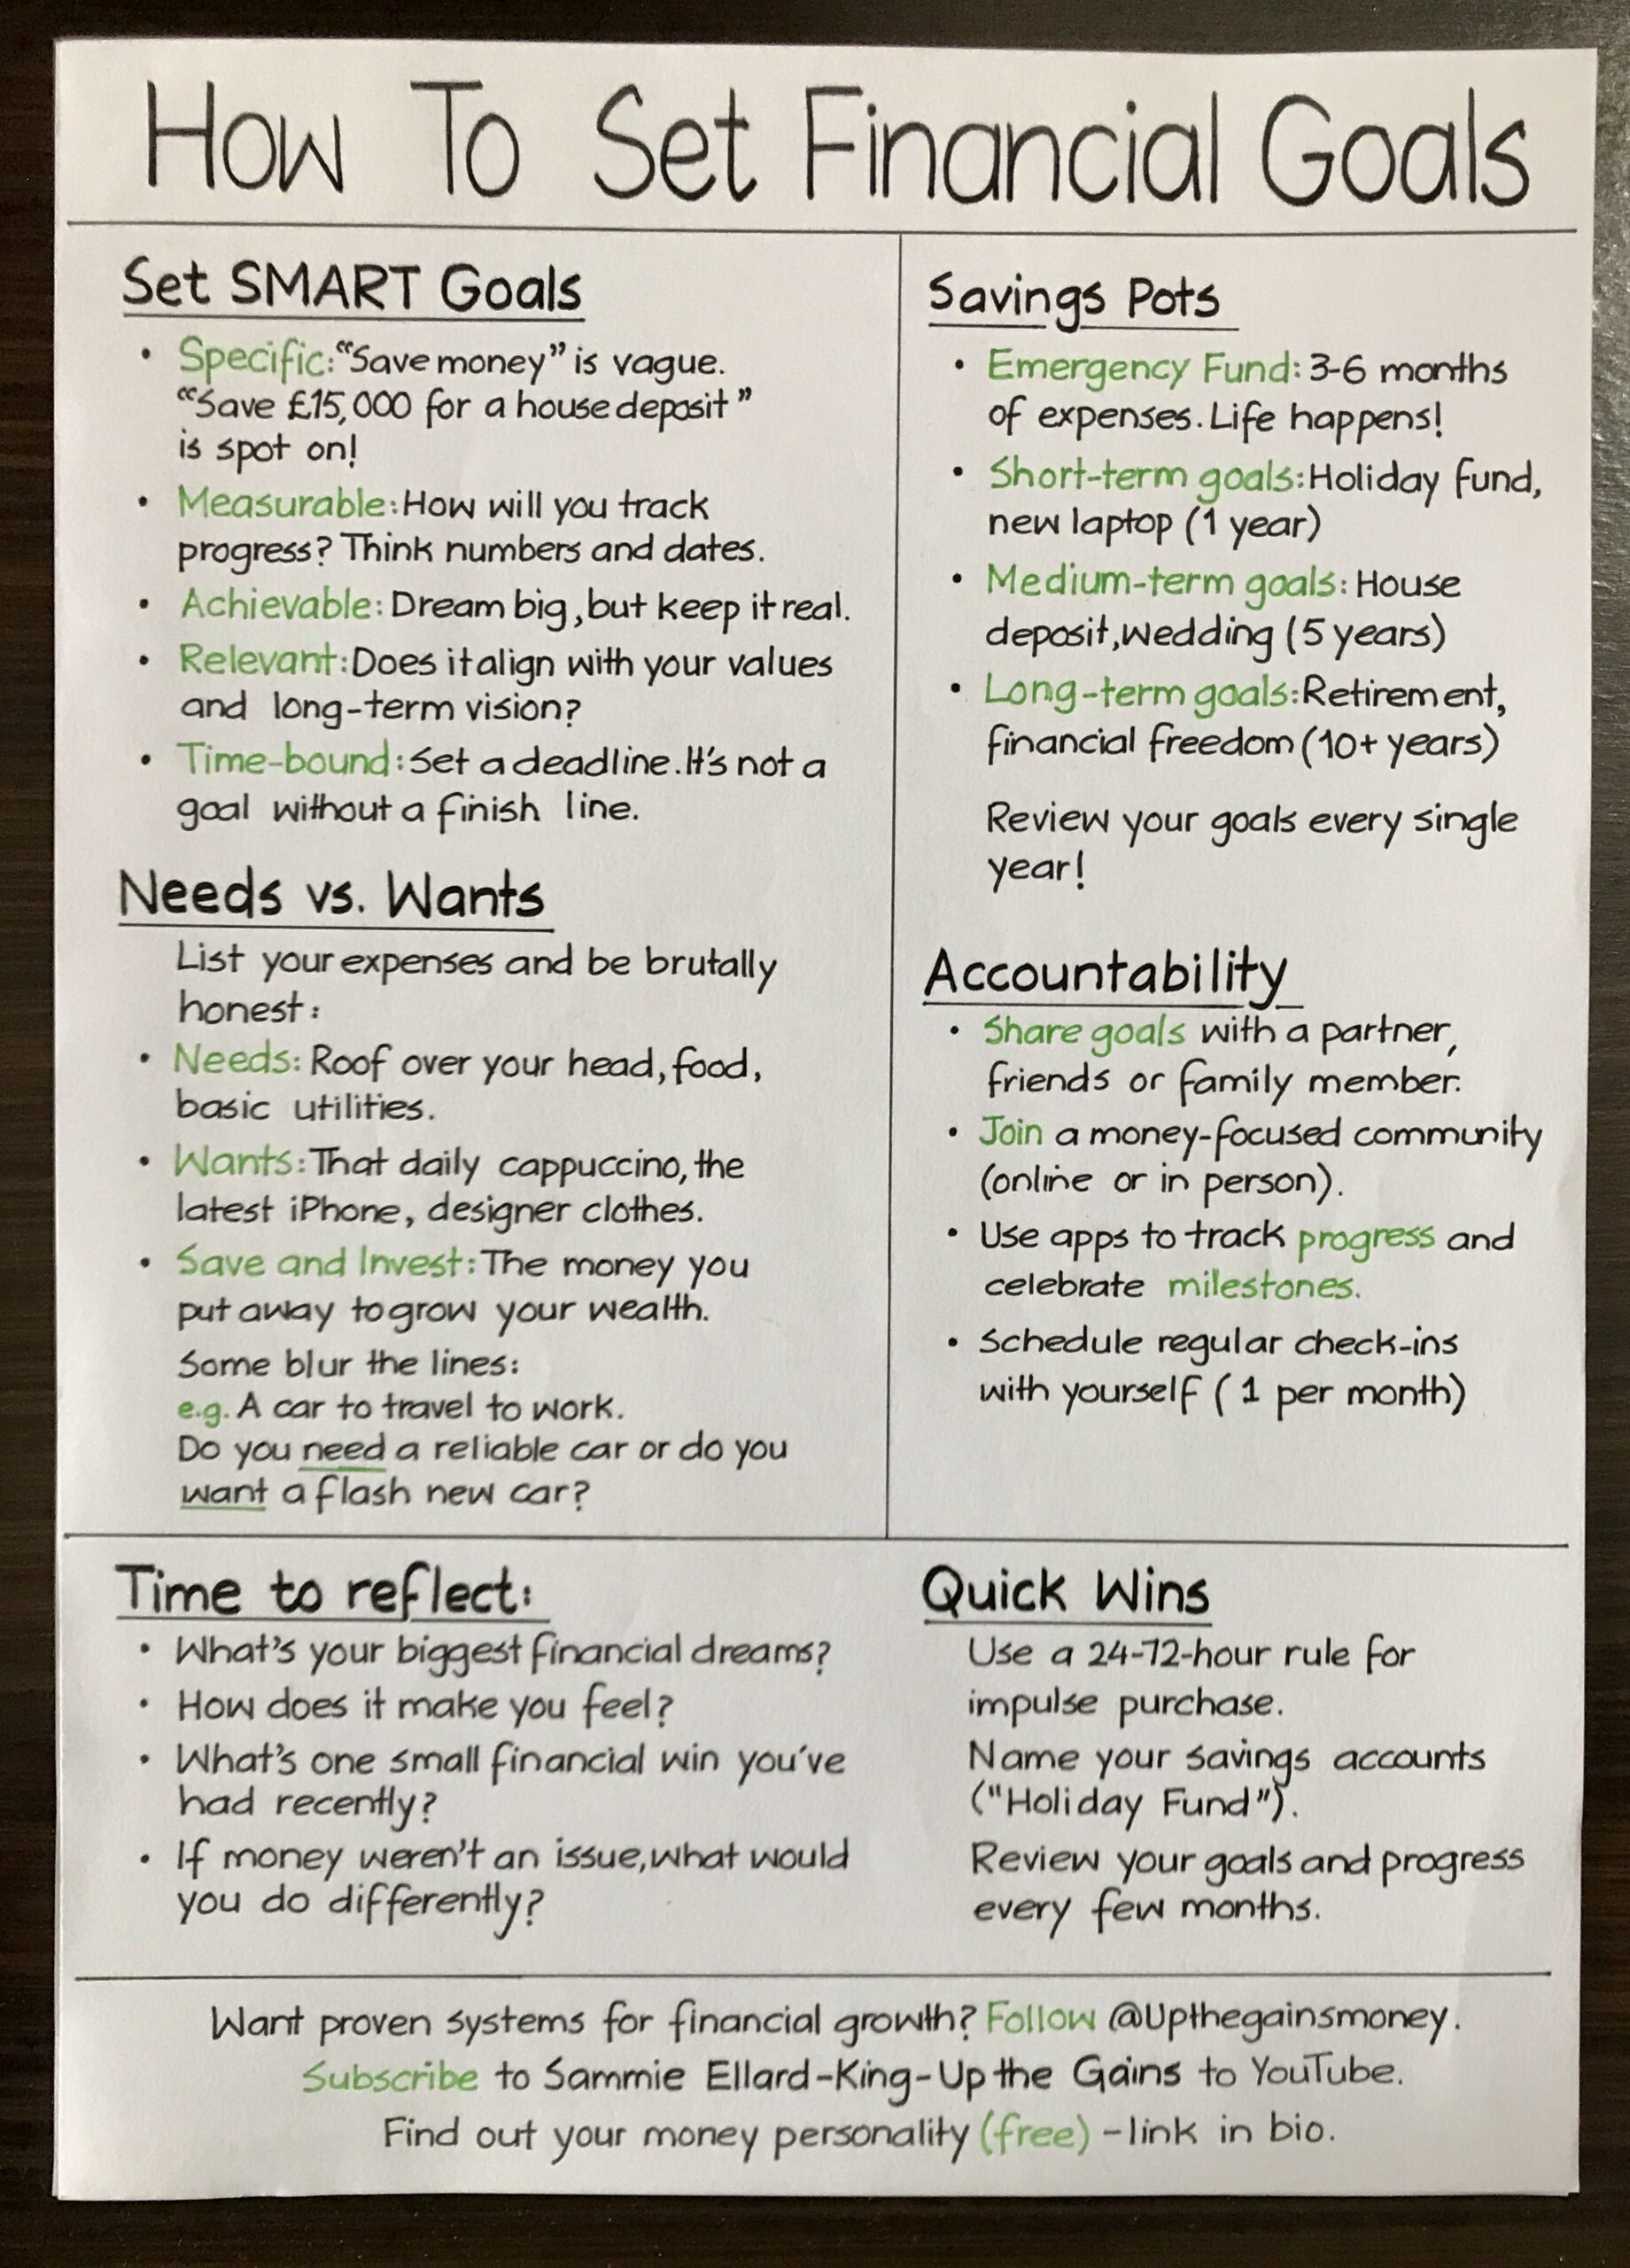 How To Set Financial Goals
Set SMART Goals
• Specific: "Save money" is vague.
"Save £15,000 for a house deposit"
is spot on!
• Measurable: How will you track
progress? Think numbers and dates.
• Achievable: Dream big, but keep it real.
• Relevant: Does it align with your values
and long-term vision?
• Time-bound: Set a deadline. It's not a
goal without a finish line.
Needs vs. Wants
List your expenses and be brutally
honest:
• Needs: Roof over your head, food,
basic utilities.
• Wants: That daily cappuccino, the
latest iPhone, designer clothes.
• Save and Invest: The money you
put away to grow your wealth.
Some blur the lines:
e.g. A car to travel to work.
Do you need a reliable car or do you
want a flash new car?
Savings Pots
• Emergency Fund: 3-6 months
of expenses. Life happens!
• Short-term goals: Holiday fund,
new laptop (1 year)
• Medium-term goals: House
deposit, wedding (5 years)
• Long-term goals: Retirement,
financial freedom (10+ years)
Review your goals every single
year!
Accountability
• Share goals with a partner,
friends or family member.
• Join a money-focused community
(online or in person).
• Use apps to track progress and
celebrate milestones.
• Schedule regular check-ins
with yourself (1 per month)
Time to reflect:
• What's your biggest financial dreams?
• How does it make you feel?
• What's one small financial win you've
had recently?
• If money weren't an issue, what would
you do differently?
Quick Wins
Use a 24-72-hour rule for
impulse purchase.
Name your savings accounts
("Holiday Fund").
Review your goals and progress
every few months.
Want proven systems for financial growth? Follow @Upthegainsmoney.
Subscribe to Sammie Ellard-King-Up the Gains to YouTube.
Find out your money personality (free) - link in bio.